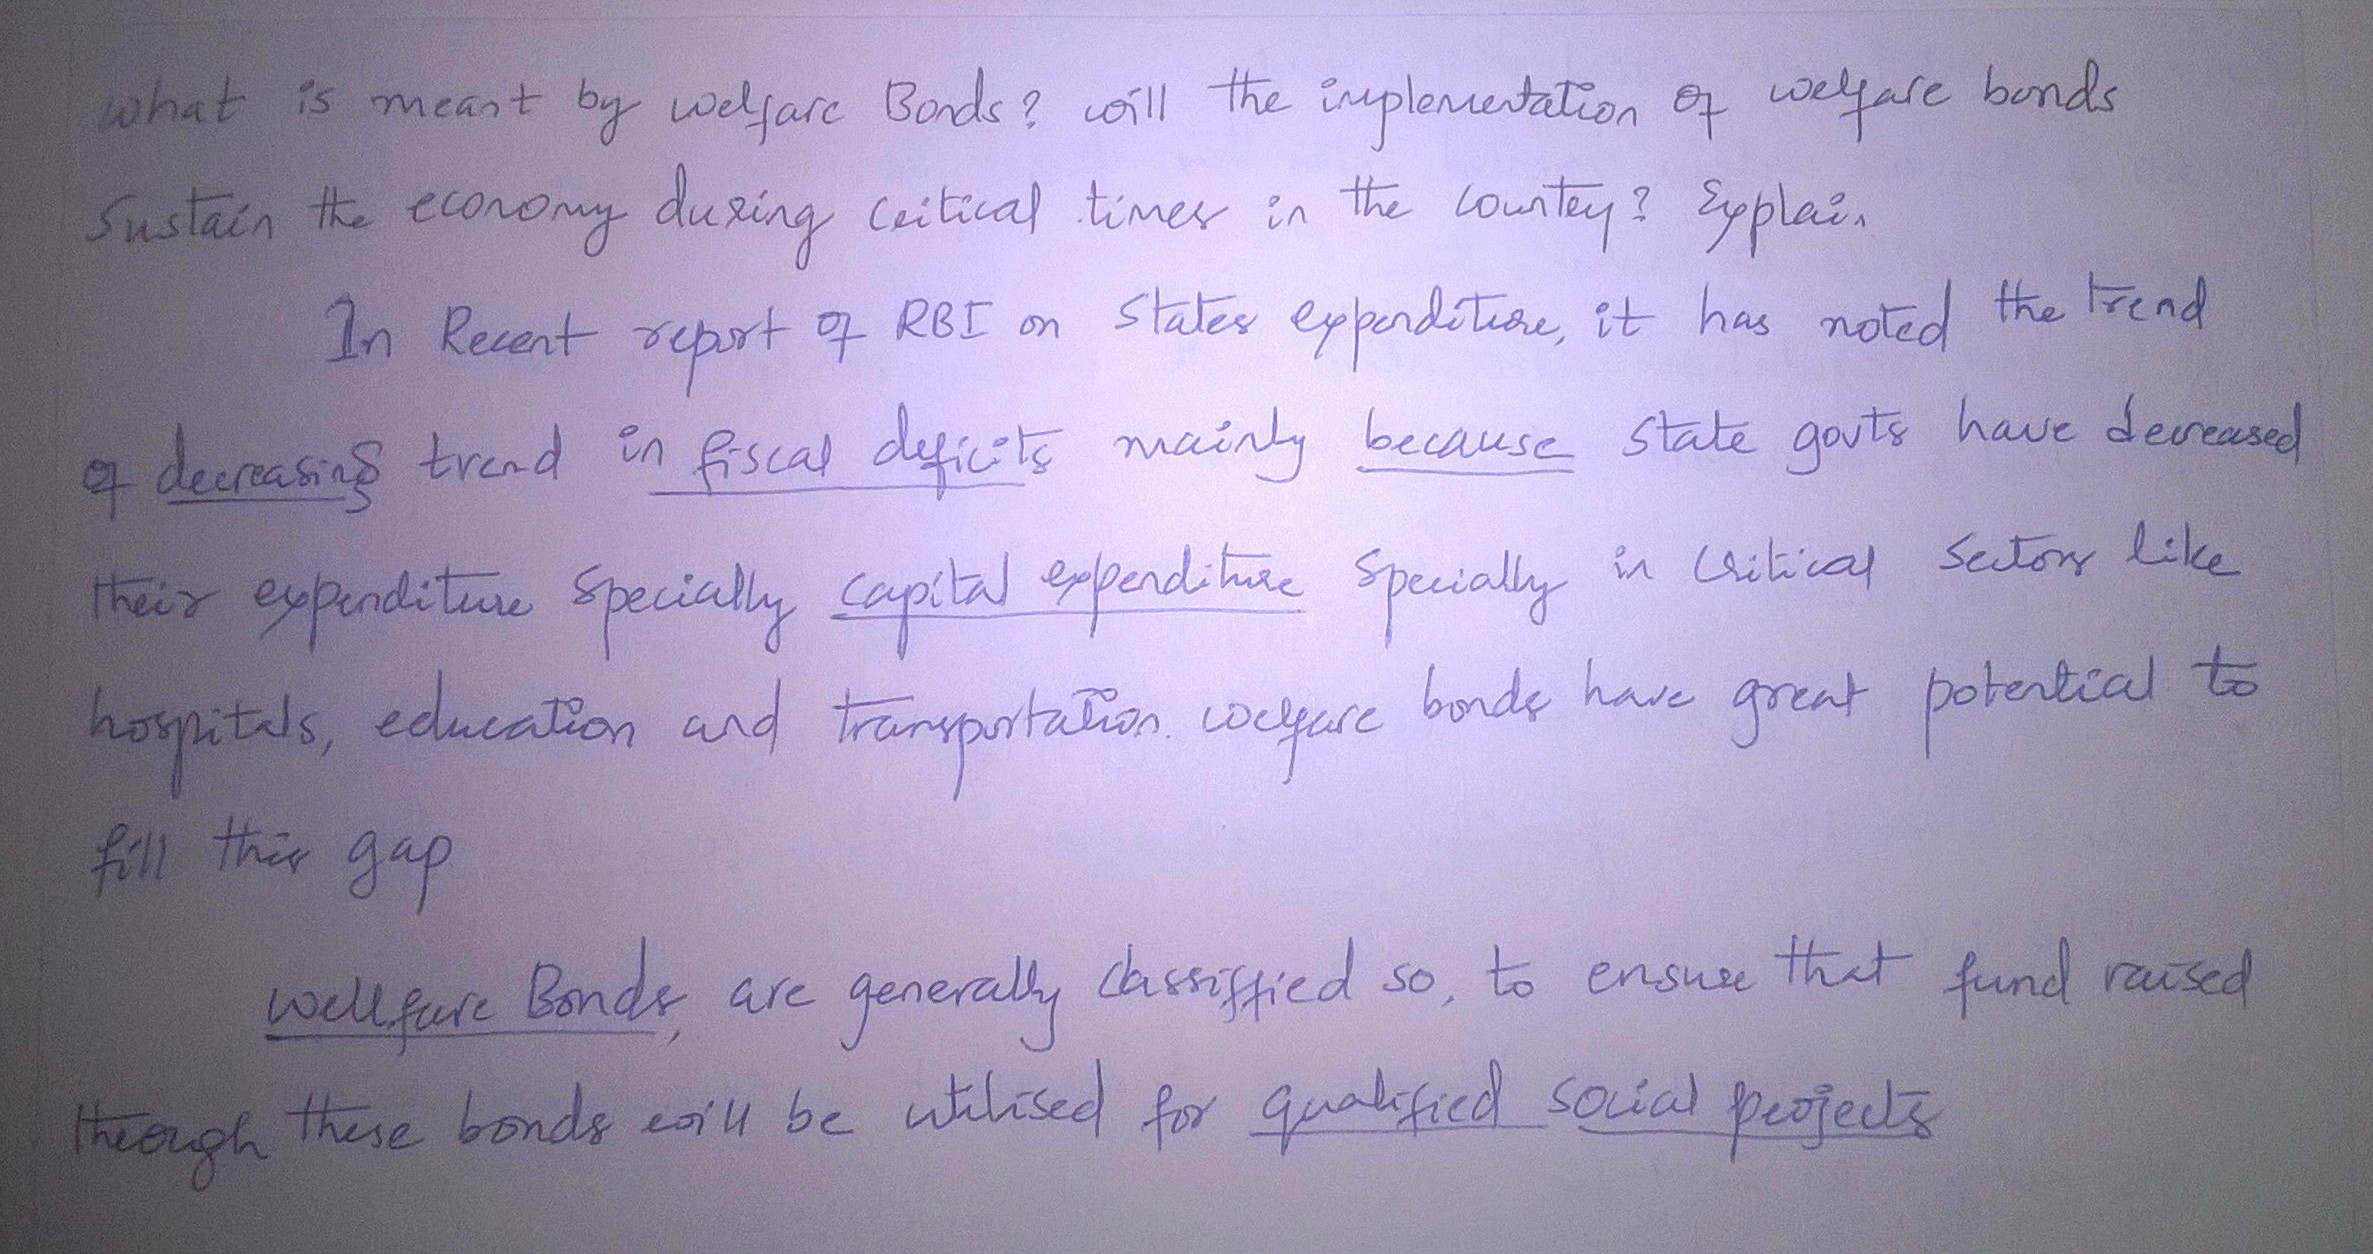 what is meant by welfare Bonds? will the implementation of welfare bonds
Sustain the economy during critical times in the country? Explain
In Recent report of RBI on States expenditure, it has noted the trend
of decreasing trend in fiscal deficits mainly because state govts have decreased
their expenditure specially capital expenditure specially in critical sectors like
hospitals, education and transportation. welfare bonds have great potential to
fill this gap
wellfare Bonds, are generally classiffied so, to ensure that fund raised
through these bonds will be utilised for qualified social projects